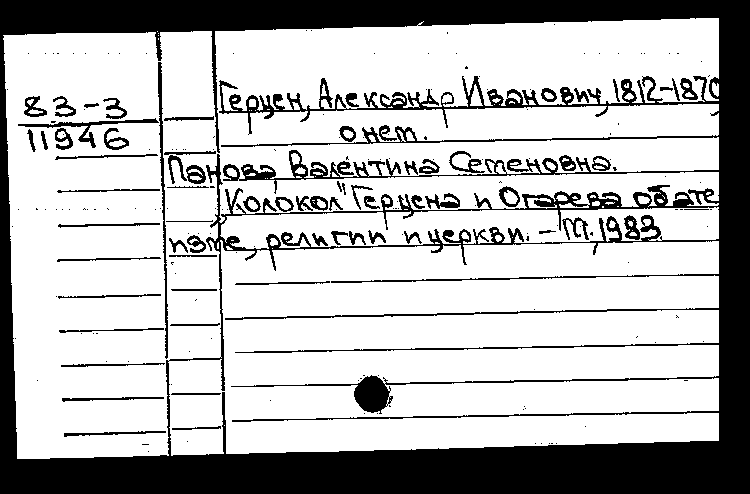 83-3
11946
Герцен, Александр Иванович, 1812-1870,
о нем.
Панова, Валентина Семеновна.
"Колокол" Герцена и Огарева об ате
изме, религии и церкви. - М., 1983